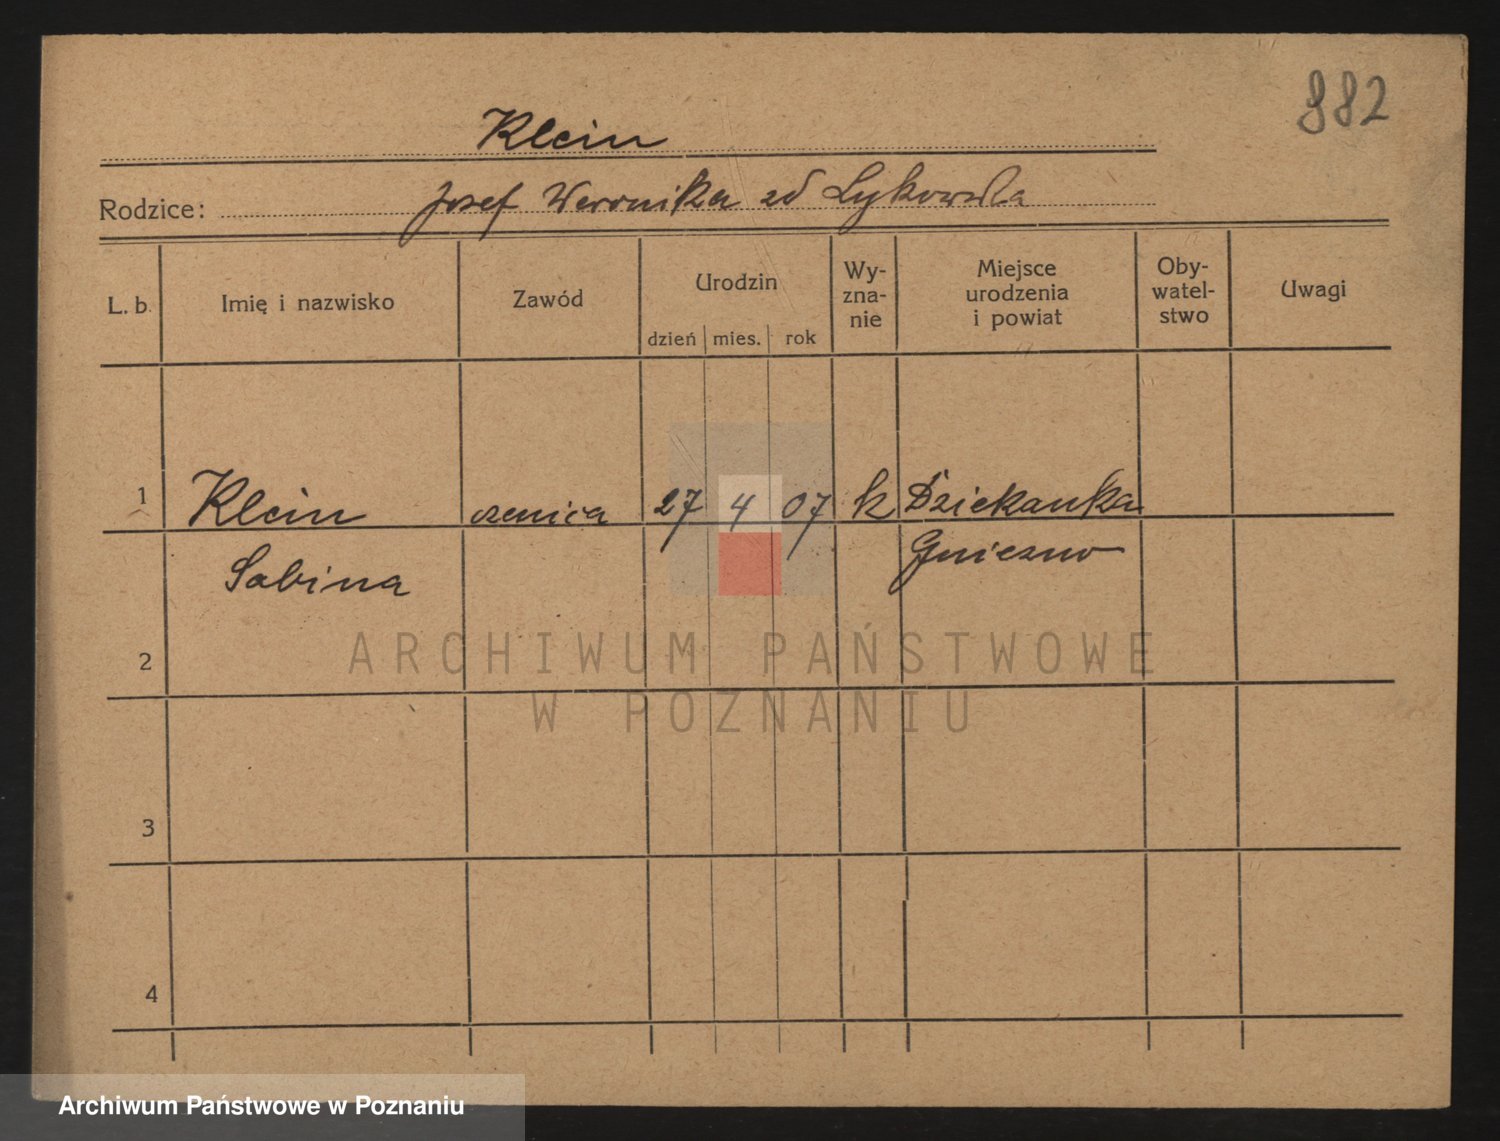 882
Klein
Rodzice: Josef Weronika zd Lykowska
L. b. Imię i nazwisko Zawód Urodzin dzień mies. rok Wy-zna-nie Miejsce urodzenia i powiat Oby-watel-stwo Uwagi
1 Klein uczenica 27 4 07 k Dziekanka
Sabina Gniezno
2
3
4
ARCHIWUM PAŃSTWOWE
W POZNANIU
Archiwum Państwowe w Poznaniu